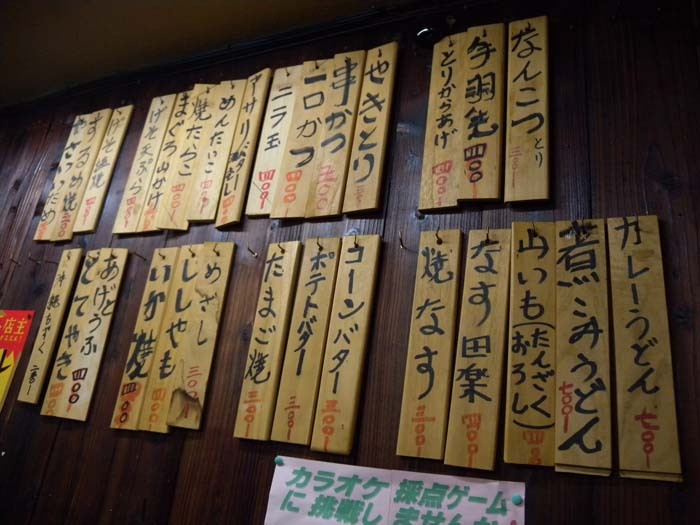 なんこつ とり 三〇〇
手羽先 四〇〇
とりからあげ 四〇〇
やきとり 三〇〇
串かつ 五〇〇
一口かつ 四〇〇
ニラ玉 四〇〇
アサリ
めんたいこ 四〇〇
焼たらこ 四〇〇
まぐろ山かけ 四〇〇
げそ天ぷら 四〇〇
げそ塩焼
するめ焼 三〇〇
やさいいため
カレーうどん 七〇〇
煮こみうどん 七〇〇
山いも(たんざく おろし) 四〇〇
なす田楽 四〇〇
焼なす 三〇〇
コーンバター 三〇〇
ポテトバター 三〇〇
たまご焼 三〇〇
めざし 三〇〇
ししゃも 四〇〇
いか焼 四〇〇
あげどうふ
どてやき 四〇〇
沖縄もずく 三〇〇
店主
カラオケ採点ゲーム
に挑戦しませんか